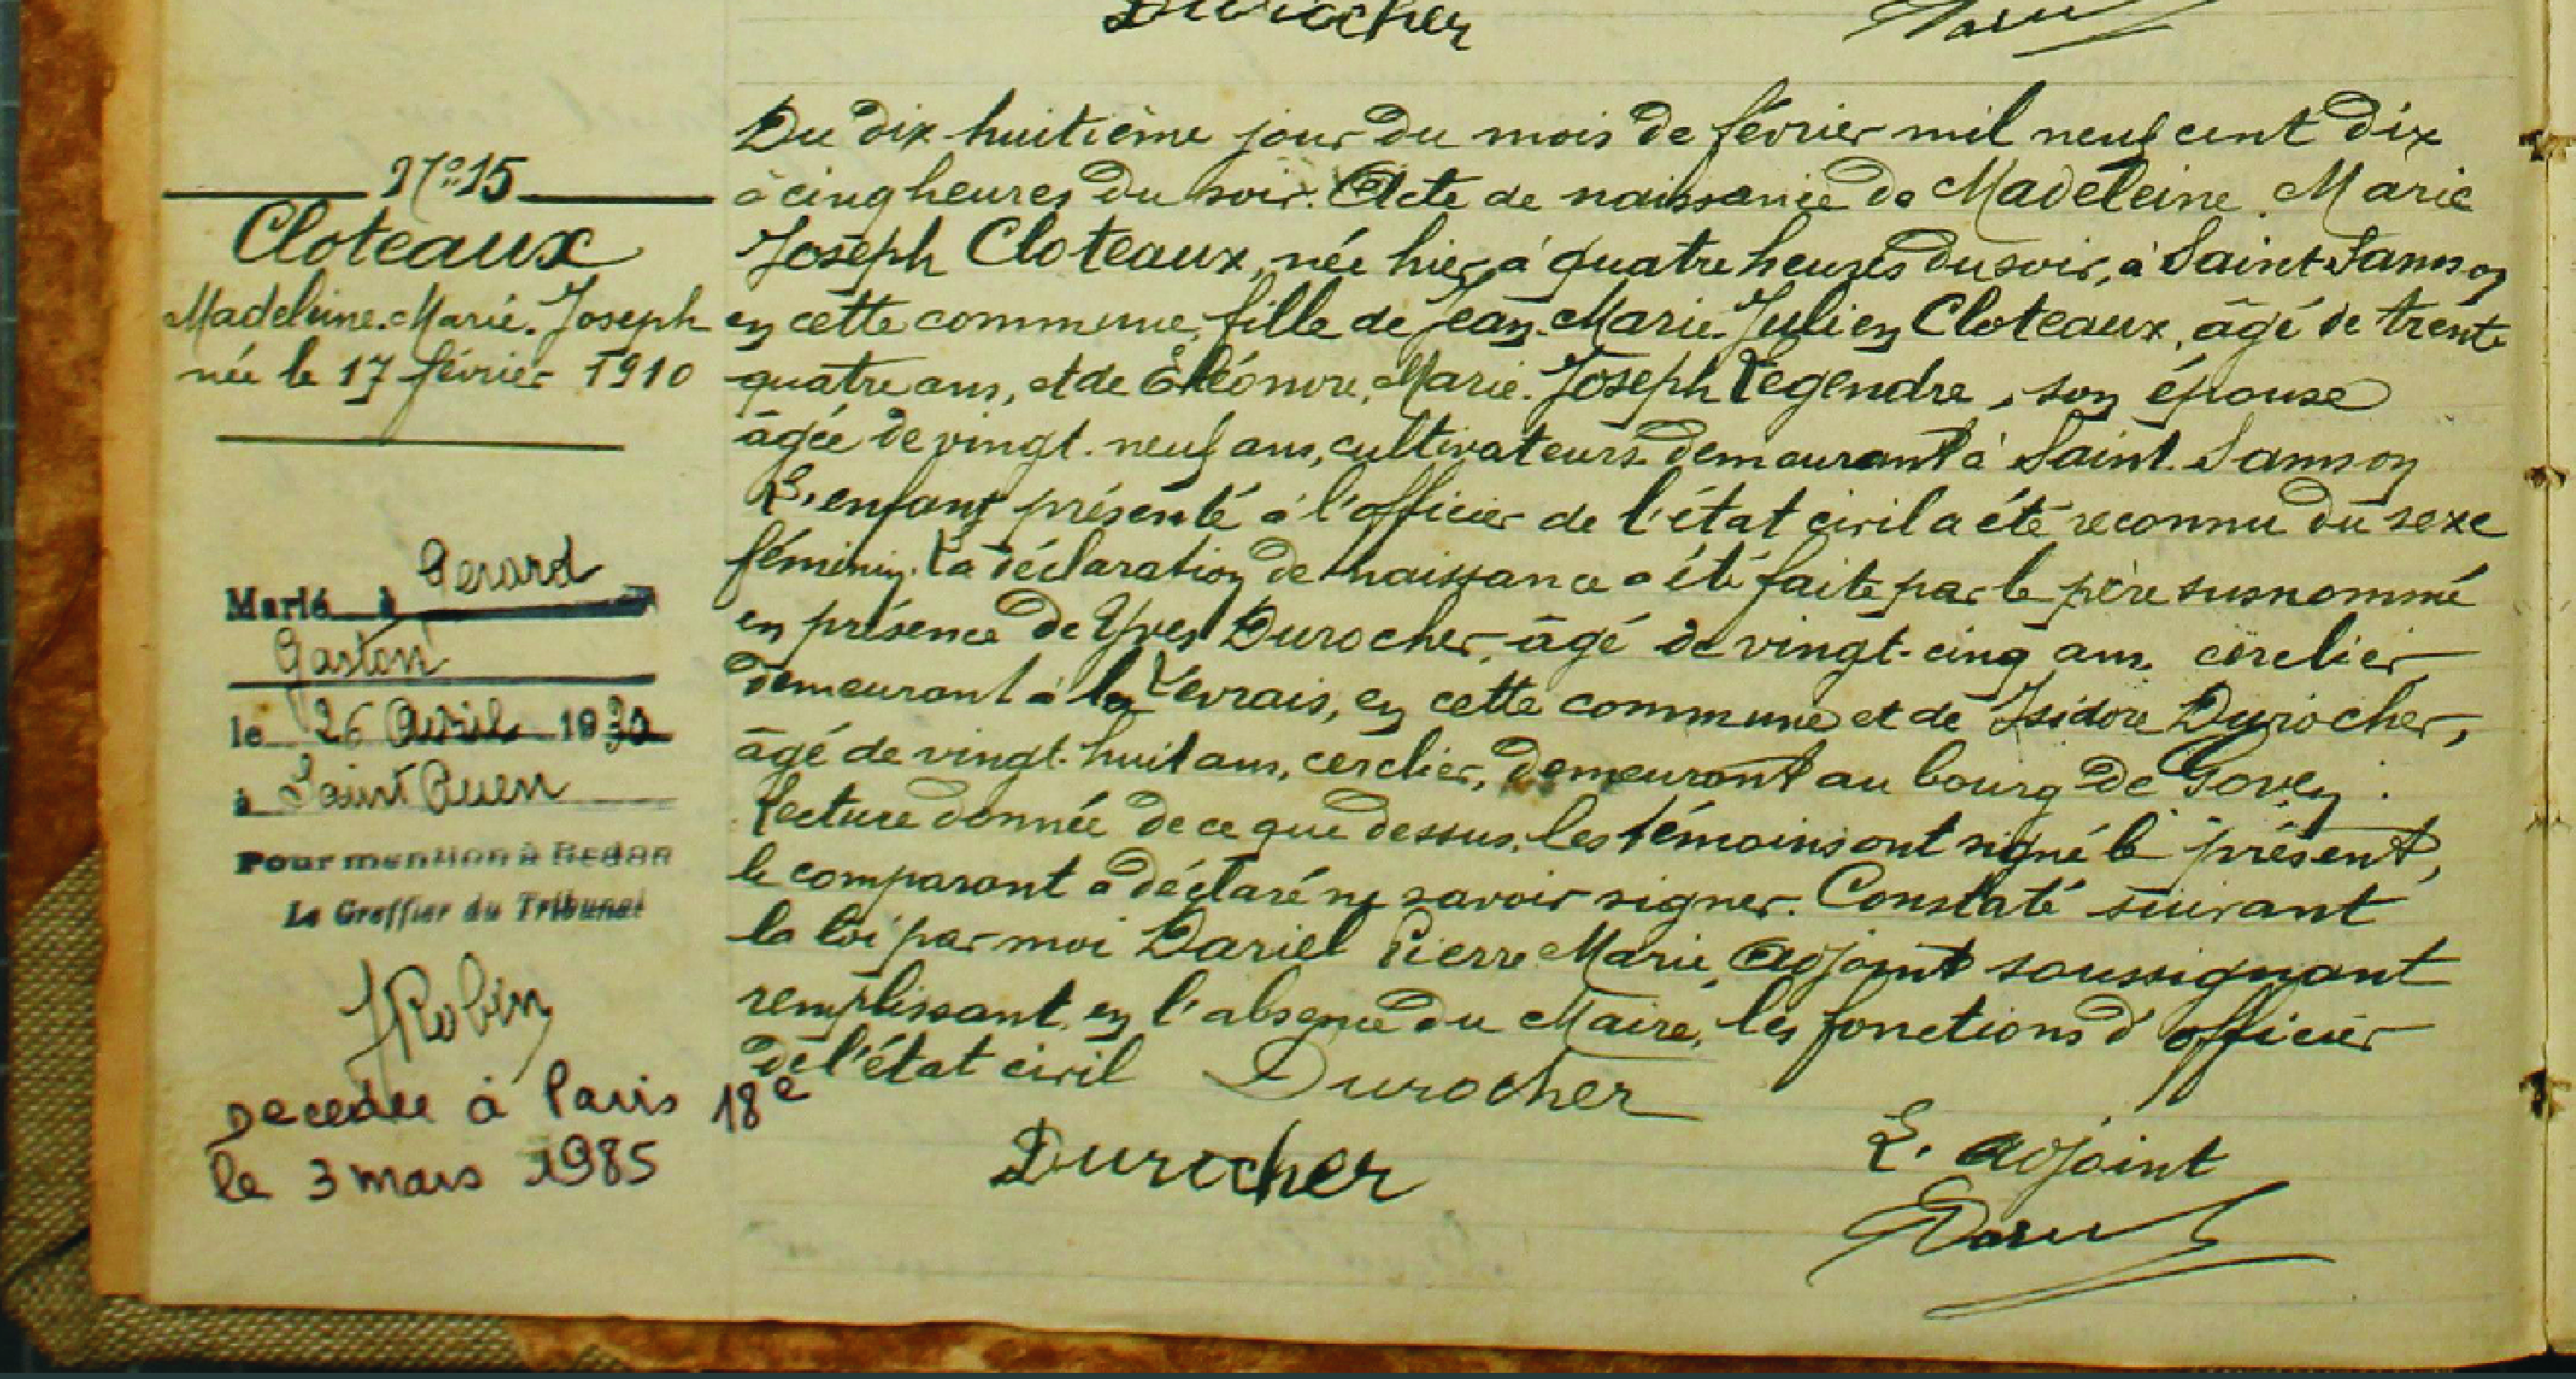 Durocher
N° 15
Cloteaux
Madeleine. Marie. Joseph
née le 17 février 1910
Marié à Gerard
Gaston
le 26 Avril 1930
à Saint Ouen
Pour mention à Redon
Le Greffier du Tribunal
JRobin
Decedee à Paris 18e
le 3 mars 1985
Du dix-huitième jour du mois de février mil neuf cent dix
à cinq heures du soir. Acte de naissance de Madeleine. Marie
Joseph Cloteaux, née hier, à quatre heures du soir, à Saint Samson
en cette commune, fille de Jean. Marie. Julien Cloteaux, âgé de trente
quatre ans, et de Eléonore, Marie. Joseph Legendre, son épouse
âgée de vingt-neuf ans, cultivateurs demeurant à Saint. Samson
L'enfant présenté à l'officier de l'état civil a été reconnu du sexe
féminin. La déclaration de naissance a été faite par le père susnommé
en présence de Yves Durocher, âgé de vingt-cinq ans, cerclier
demeurant à la Vevrais, en cette commune et de Isidore Durocher,
âgé de vingt-huit ans, cerclier, demeurant au bourg de Goven.
Lecture donnée de ce que dessus, les témoins ont signé le présent,
le comparant a déclaré ne savoir signer. Constaté suivant
la loi par moi Dariel Pierre Marie, adjoint soussignant
remplissant en l'absence du Maire, les fonctions d'officier
de l'état civil Durocher
Durocher
L'adjoint
Dariel